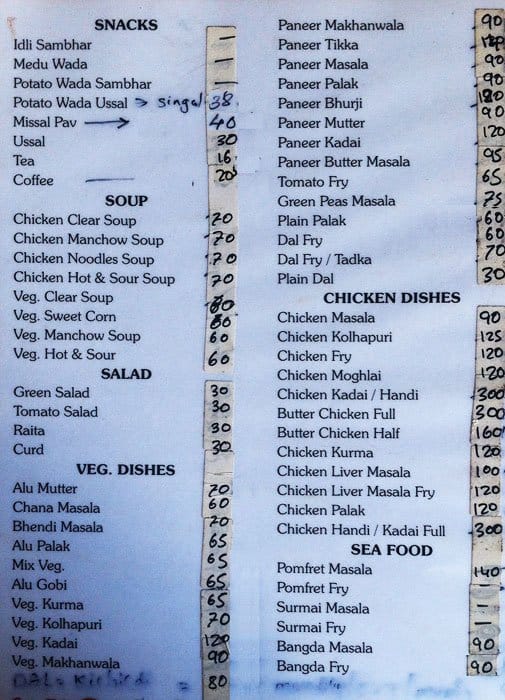 SNACKS
Idli Sambhar —
Medu Wada —
Potato Wada Sambhar —
Potato Wada Ussal → singal 38
Missal Pav → 40
Ussal 30
Tea 16
Coffee — 20
SOUP
Chicken Clear Soup 70
Chicken Manchow Soup 70
Chicken Noodles Soup 70
Chicken Hot & Sour Soup 70
Veg. Clear Soup 60
Veg. Sweet Corn 60
Veg. Manchow Soup 60
Veg. Hot & Sour 60
SALAD
Green Salad 30
Tomato Salad 30
Raita 30
Curd 30
VEG. DISHES
Alu Mutter 70
Chana Masala 60
Bhendi Masala 70
Alu Palak 65
Mix Veg. 65
Alu Gobi 65
Veg. Kurma 65
Veg. Kolhapuri 70
Veg. Kadai 120
Veg. Makhanwala 90
80
Paneer Makhanwala 90
Paneer Tikka
Paneer Masala 90
Paneer Palak 90
Paneer Bhurji
Paneer Mutter 90
Paneer Kadai 120
Paneer Butter Masala 95
Tomato Fry 65
Green Peas Masala 75
Plain Palak 60
Dal Fry 60
Dal Fry / Tadka 70
Plain Dal 30
CHICKEN DISHES
Chicken Masala 90
Chicken Kolhapuri 125
Chicken Fry 120
Chicken Moghlai 120
Chicken Kadai / Handi 300
Butter Chicken Full 300
Butter Chicken Half 160
Chicken Kurma 120
Chicken Liver Masala 100
Chicken Liver Masala Fry 120
Chicken Palak 120
Chicken Handi / Kadai Full 300
SEA FOOD
Pomfret Masala 140
Pomfret Fry –
Surmai Masala –
Surmai Fry –
Bangda Masala 90
Bangda Fry 90